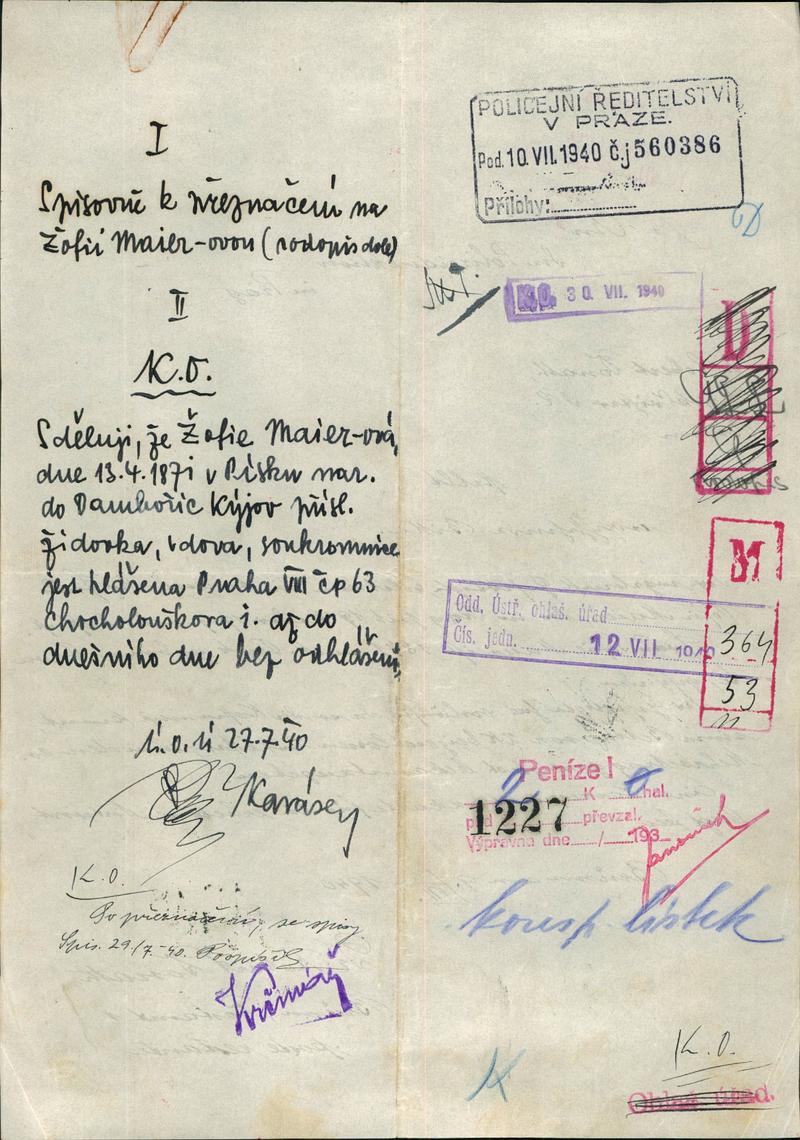 I
Spisovně k přeznačení na
Žofii Maier-ovou (rodopis dole)
II
K.O.
Sděluji, že Žofie Maier-ová,
dne 13.4.1871 v Písku nar.
do Dambořic Kyjov přísl.
židovka, vdova, soukromnice
jest hlášena Praha VIII čp 63
Chocholouškova i. až do
dnešního dne bez odhlášení.
27.7.40
Karásek
K.O.
Po přeznačení, se spisy
Spis. 29/7-40. Pospíšil
POLICEJNÍ ŘEDITELSTVÍ
V PRAZE.
Pod. 10.VII.1940 č.j 560386
Přílohy:
K.O. 30. VII. 1940
D
M
Odd. Ústř. ohlaš. úřad
Čís. jedn. 12 VII 1940
364
53
11
Peníze I
2 K 0 hal.
pod 1227 převzal.
Výpravna dne / 193
koresp. lístek
K.O.
Ohlaš. úřad.